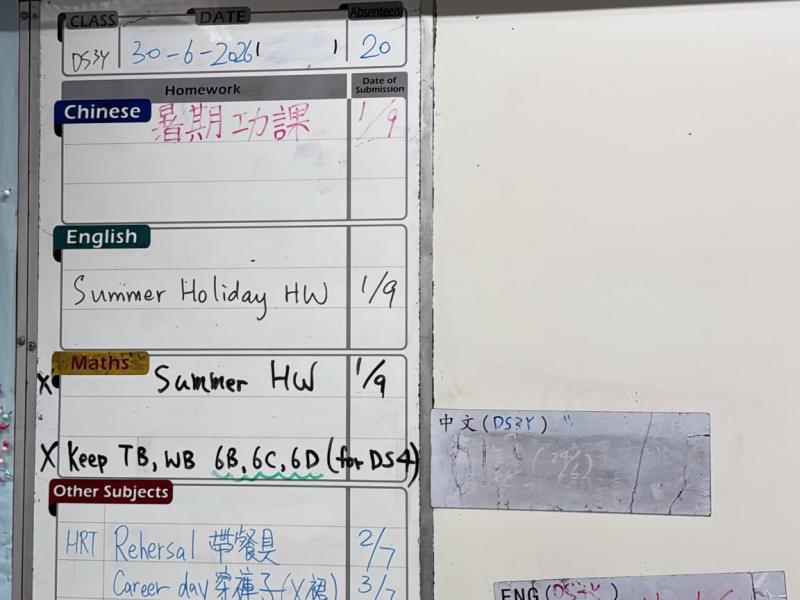 CLASS DATE Absentee(s)
DS3Y 30-6-2026( ) 20
Homework Date of Submission
Chinese 暑期功課 1/9
English
Summer Holiday HW 1/9
Maths
X Summer HW 1/9
X Keep TB, WB 6B, 6C, 6D (for DS4)
Other Subjects
HRT Rehersal 帶餐具 2/7
Career day 穿褲子(X裙) 3/7
中文(DS3Y)
(29/6)
ENG(DS3Y)